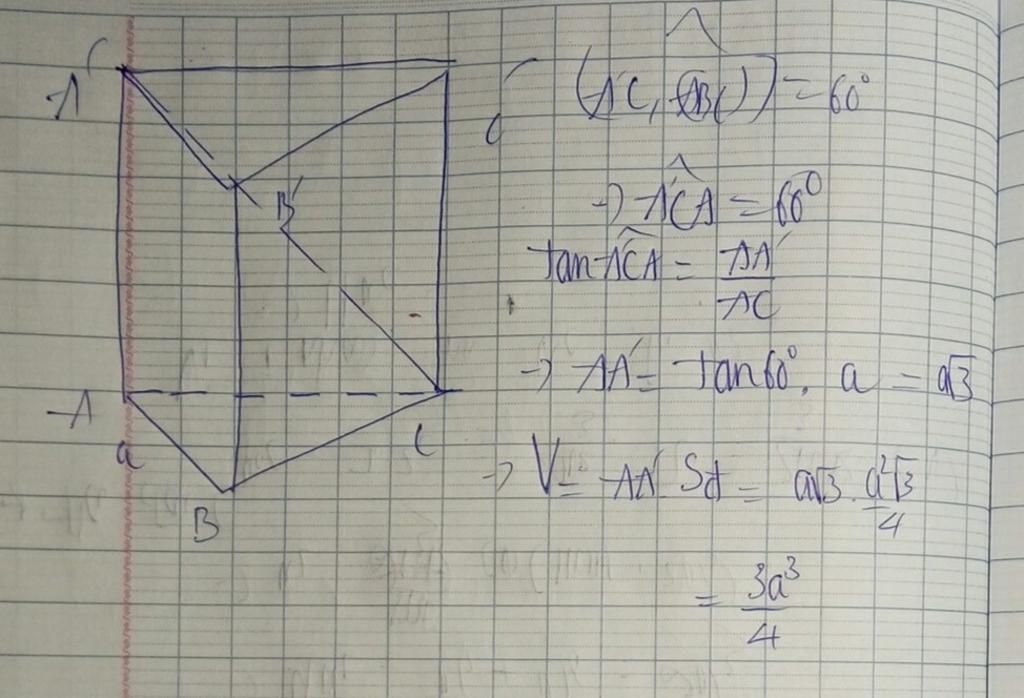 A'
C'
B'
A
a
C
B
(A'C, (ABC)) = 60°
→ A'CA = 60°
tan A'CA = AA' / AC
→ AA' = tan 60°. a = a√3
→ V = AA'. Sđ = a√3 . a²√3 / 4
= 3a³ / 4